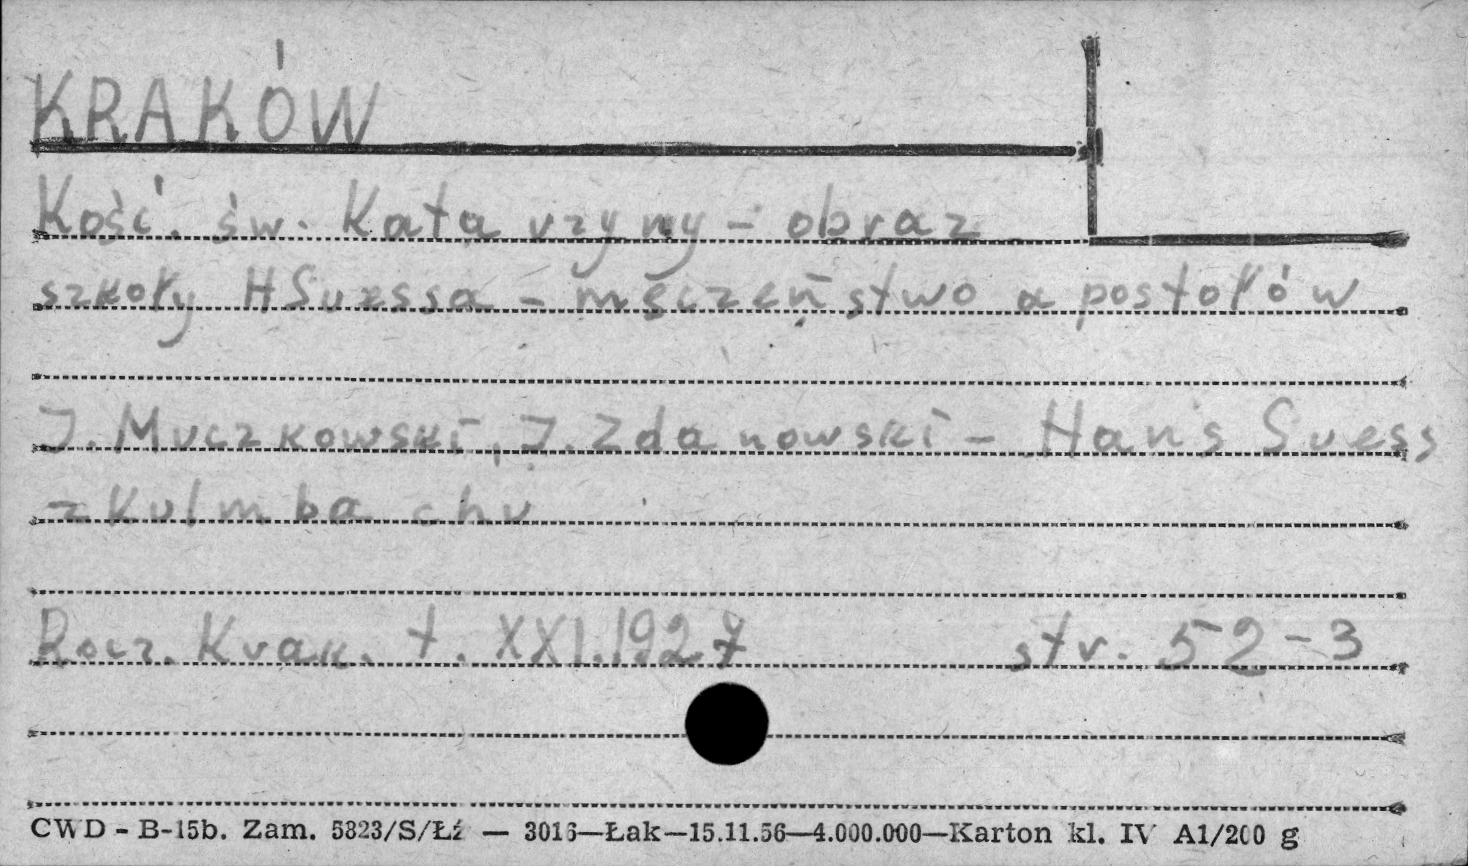 KRAKÓW
Kość. św. Katarzyny - obraz
szkoły HSuessa - męczeństwo apostołów
J. Muczkowski, J. Zdanowski - Hans Suess
z Kulmbachu
Rocz. Krak. t. XXI. 1927 str. 52-3
CWD - B-15b. Zam. 5823/S/Łź — 3016—Łak—15.11.56—4.000.000—Karton kl. IV A1/200 g